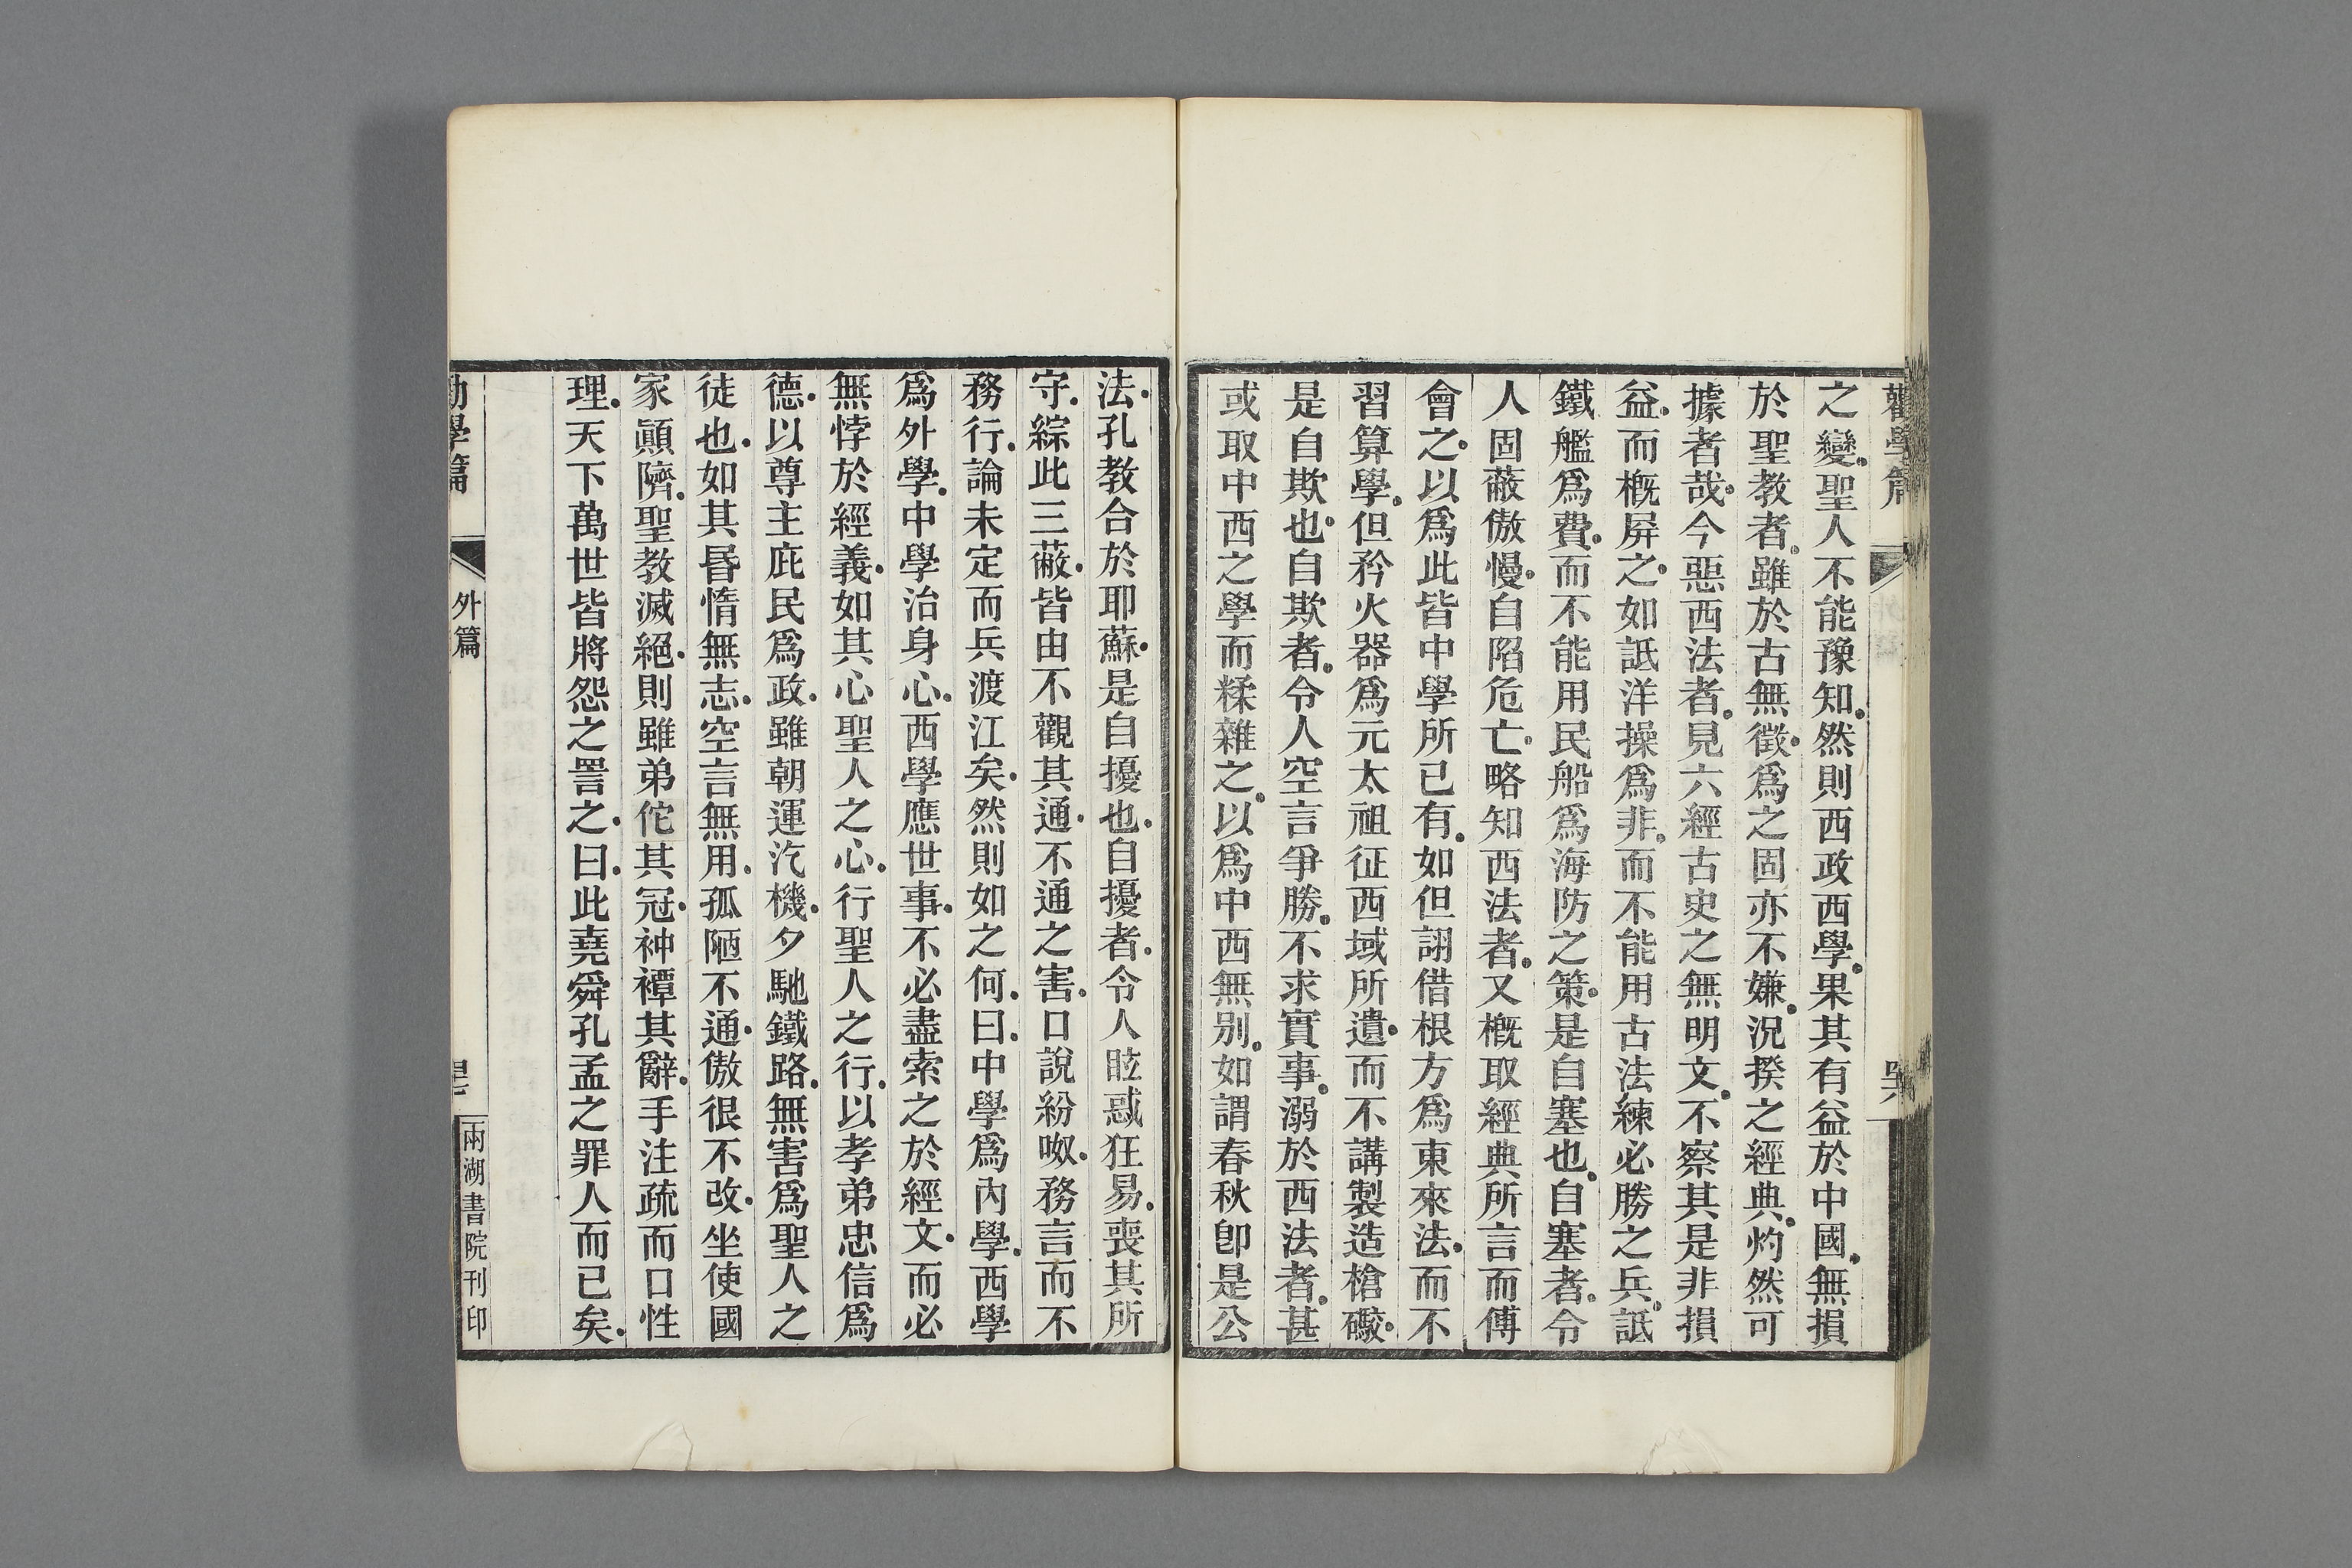 勸學篇
之變聖人不能豫知然則西政西學果其有益於中國無損
於聖教者雖於古無徵爲之固亦不嫌況揆之經典灼然可
據者哉今惡西法者見六經古史之無明文不察其是非損
益而概屏之如詆洋操爲非而不能用古法練必勝之兵詆
鐵艦爲費而不能用民船爲海防之策是自塞也自塞者令
人固蔽傲慢自陷危亡略知西法者又概取經典所言而傅
會之以爲此皆中學所已有如但詡借根方爲東來法而不
習算學但矜火器爲元太祖征西域所遺而不講製造槍礮
是自欺也自欺者令人空言爭勝不求實事溺於西法者甚
或取中西之學而糅雜之以爲中西無別如謂春秋卽是公
法孔教合於耶蘇是自擾也自擾者令人眩惑狂易喪其所
守綜此三蔽皆由不觀其通不通之害口說紛呶務言而不
務行論未定而兵渡江矣然則如之何曰中學爲內學西學
爲外學中學治身心西學應世事不必盡索之於經文而必
無悖於經義如其心聖人之心行聖人之行以孝弟忠信爲
德以尊主庇民爲政雖朝運汽機夕馳鐵路無害爲聖人之
徒也如其昬惰無志空言無用孤陋不通傲很不改坐使國
家顚隮聖教滅絕則雖弟佗其冠衶禫其辭手注疏而口性
理天下萬世皆將怨之詈之曰此堯舜孔孟之罪人而已矣
學篇 外篇
兩湖書院刊印